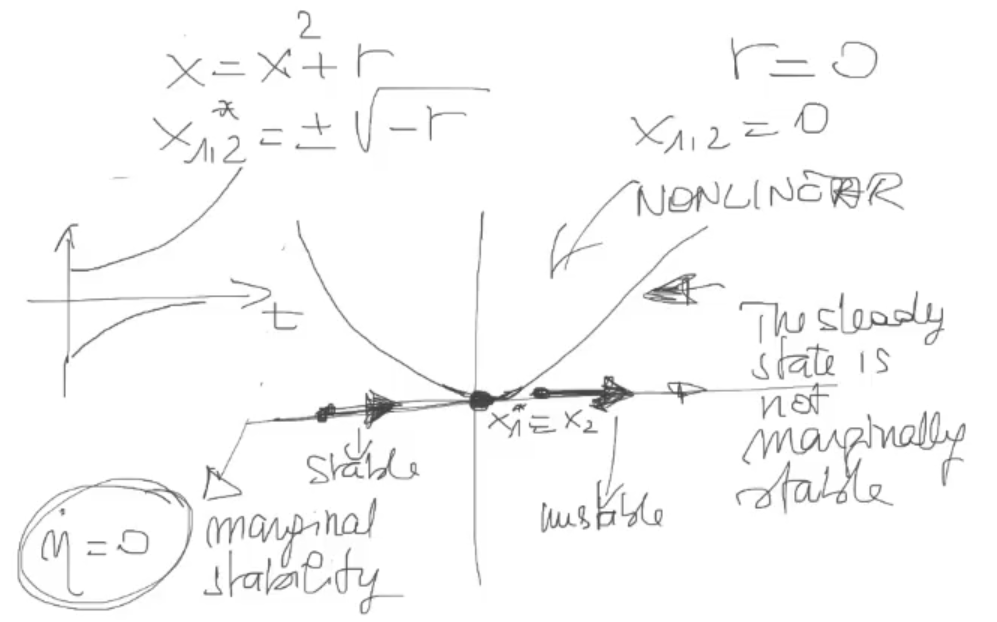 x = x² + r
x*₁,₂ = ± √-r
r = 0
x₁,₂ = 0
NONLINEAR
t
The steady
state is
not
marginally
stable
x₁* = x₂
stable
unstable
η̇ = 0
marginal
stability